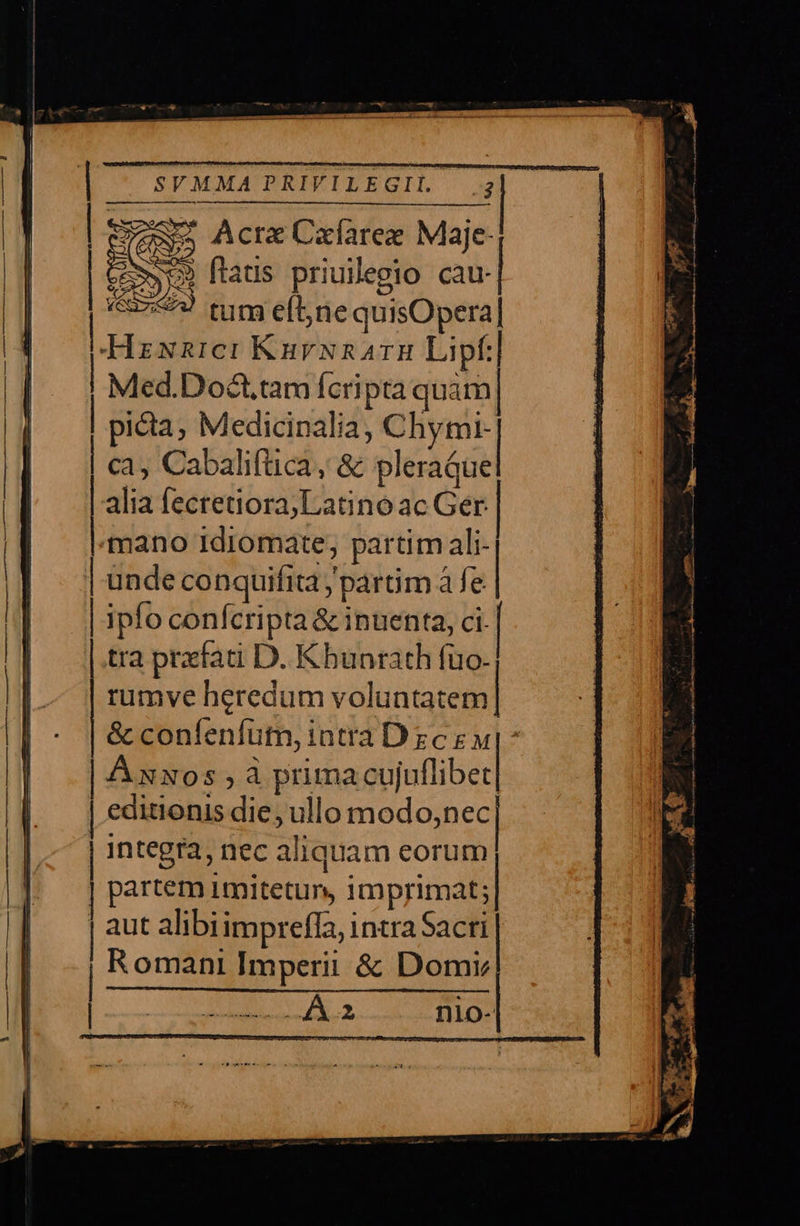 SVMMA PRIVILEGII. 3
SAcræ Cæſareæ Maje-
ſtatis priuilegio cau-
tum eſt, ne quis Opera
HENRICI KHVNRATH Lipſ:
Med. Doct, tam ſcripta quàm
picta, Medicinalia, Chymi-
ca, Cabaliſtica, & pleraq́ue
alia ſecretiora, Latino ac Ger-
mano idiomate, partim ali-
unde conquiſita, partim à ſe
ipſo conſcripta & inuenta, ci-
tra præfati D. Khunrath ſuo-
rumve heredum voluntatem
& conſenſum, intra DECEM
ANNOS, à prima cujuſlibet
editionis die, ullo modo, nec
integra, nec aliquam eorum
partem imitetur, imprimat;
aut alibi impreſſa, intra Sacri
Romani Imperii & Domi-
A 2 nio-